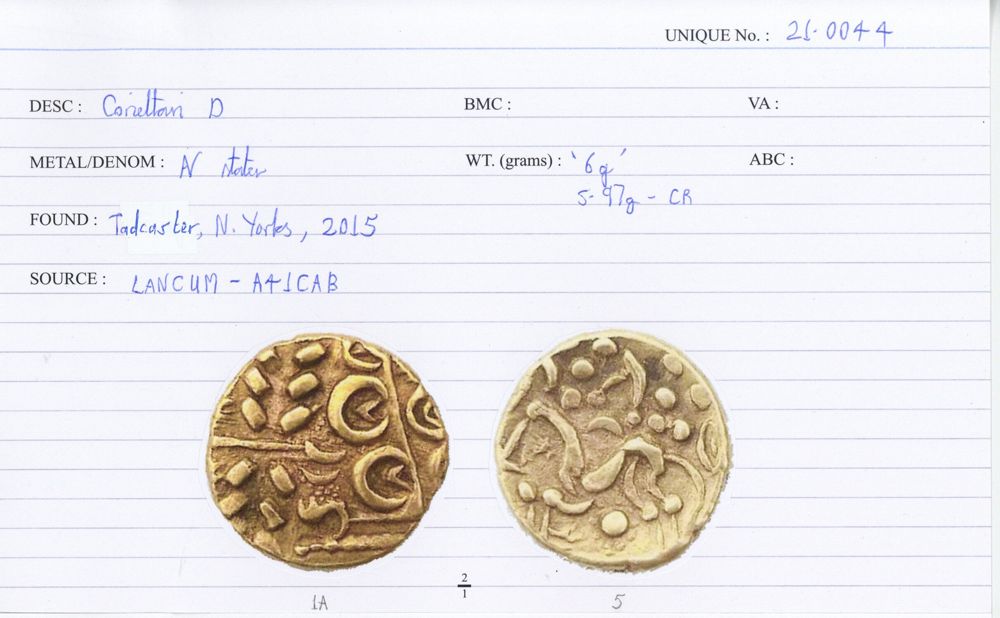 UNIQUE No. : 21.0044
DESC : Corieltavi D
BMC :
VA :
METAL/DENOM : N stater
WT. (grams) : '6g'
5.97g - CR
ABC :
FOUND : Tadcaster, N. Yorks, 2015
SOURCE : LANCUM - A41CAB
2
1
1A
5